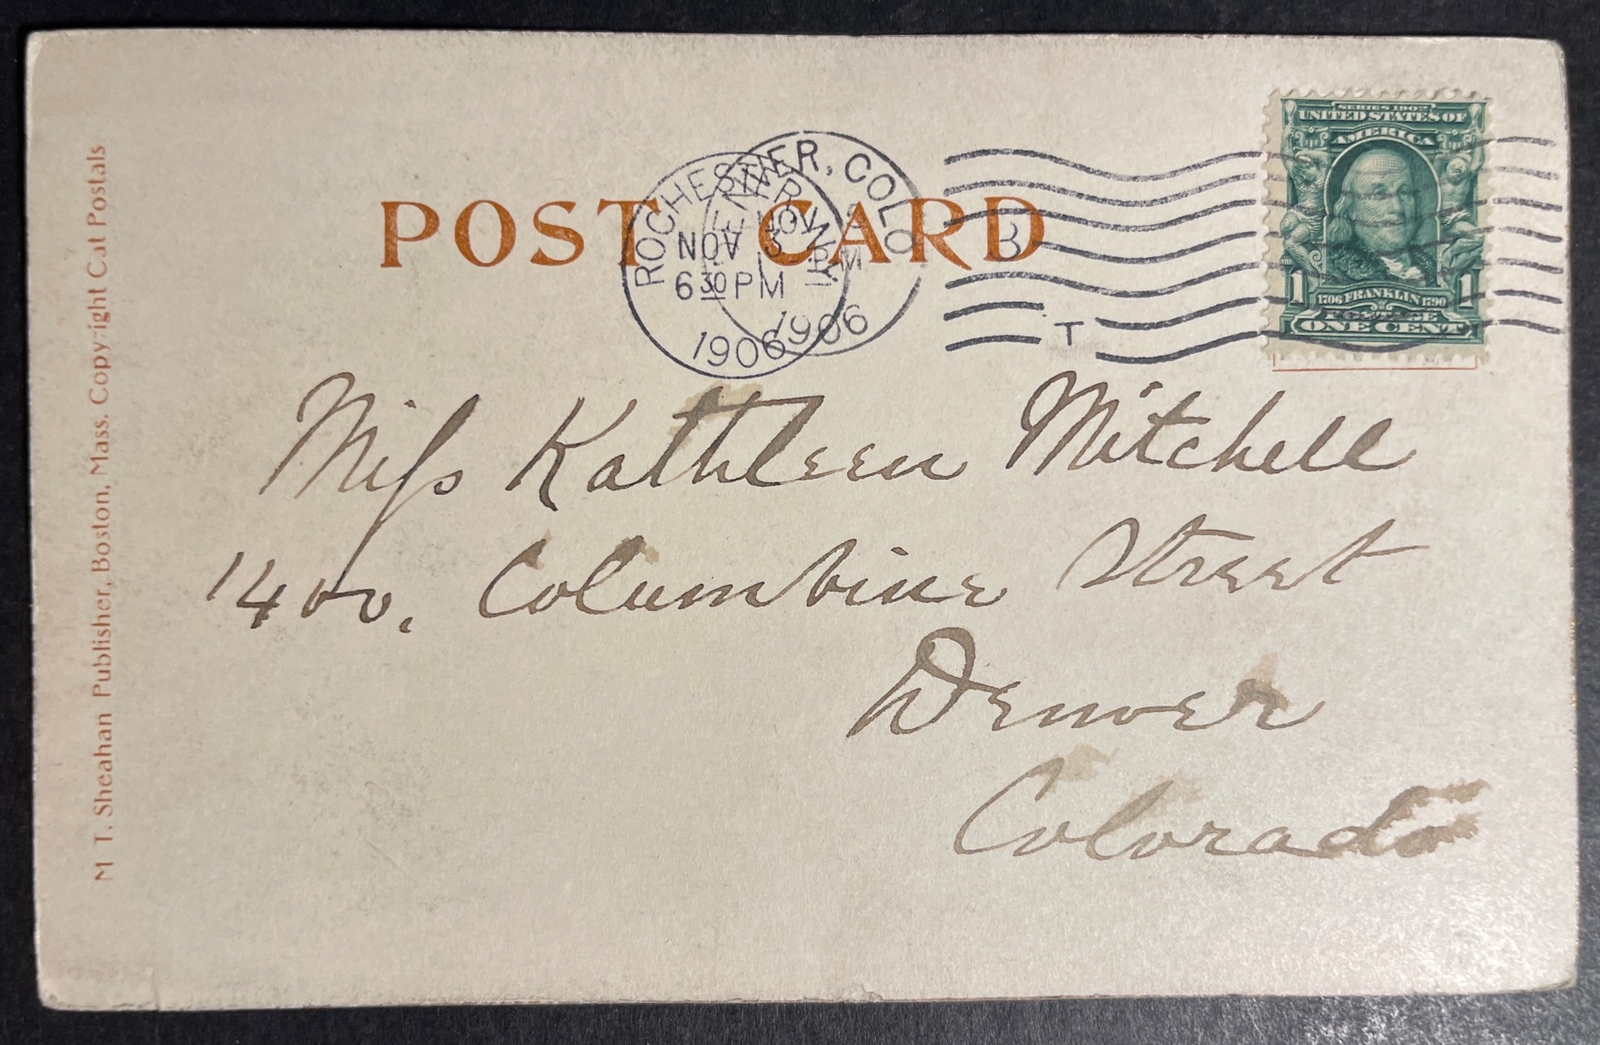 M. T. Sheahan Publisher, Boston, Mass. Copyright Cat Postals
POST CARD
ROCHESTER, N.Y.
NOV 3
630 PM
1906
DENVER, COLO
NOV
PM
1906
3
T
SERIES 1902
UNITED STATES OF
AMERICA
1 1
1706 FRANKLIN 1790
POSTAGE
ONE CENT
Miss Kathleen Mitchell
1400, Columbine Street
Denver
Colorado